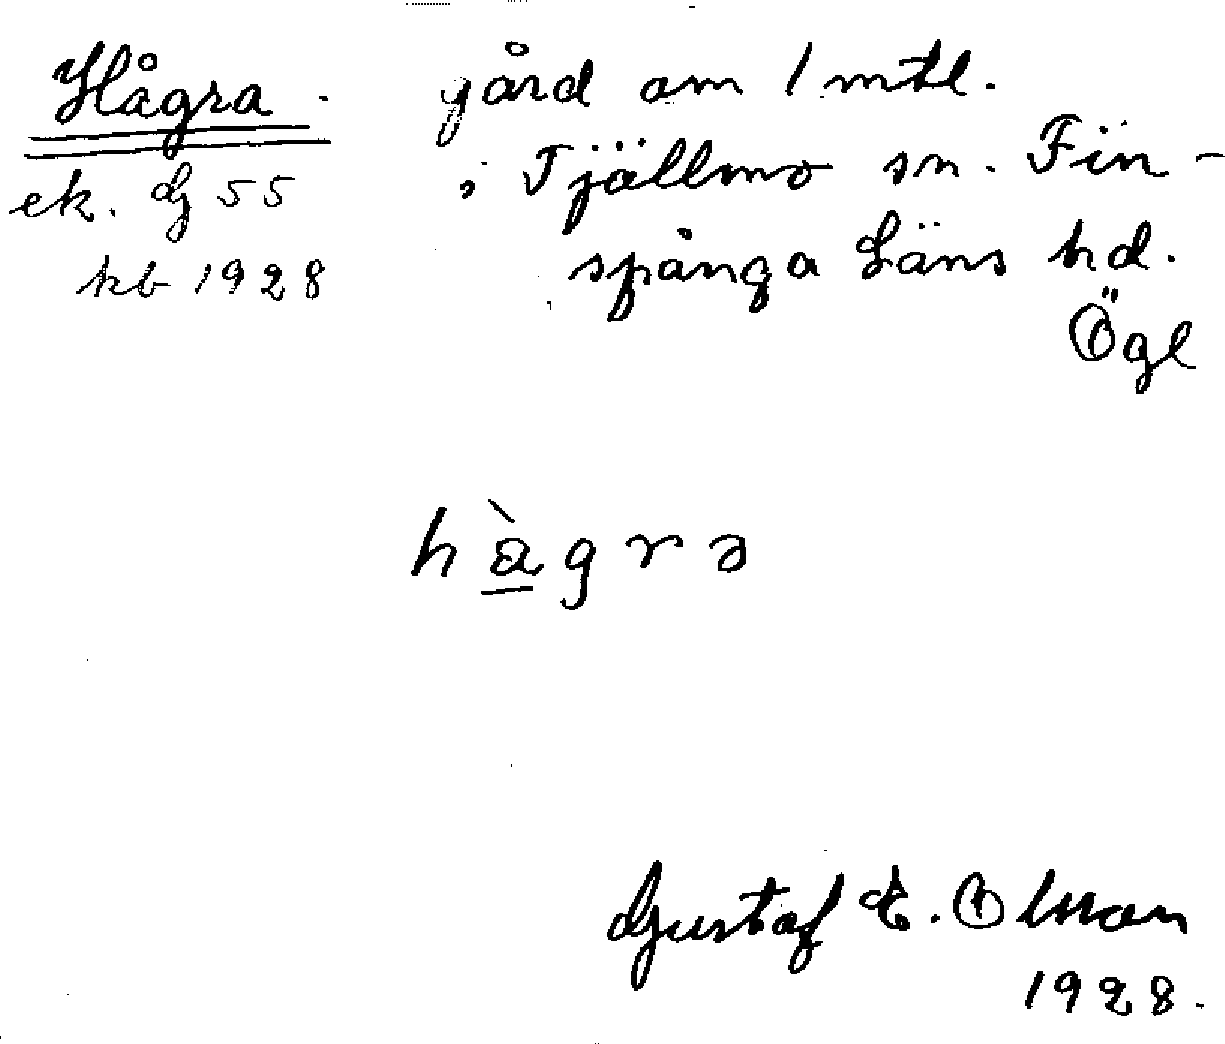 Hågra. gård om 1 mtl.
ek. G 55 i Tjällmo sn. Fin-
kb 1928 spånga Läns hd.
Ögl
hàgrə
Gustaf E. Olsson
1928.